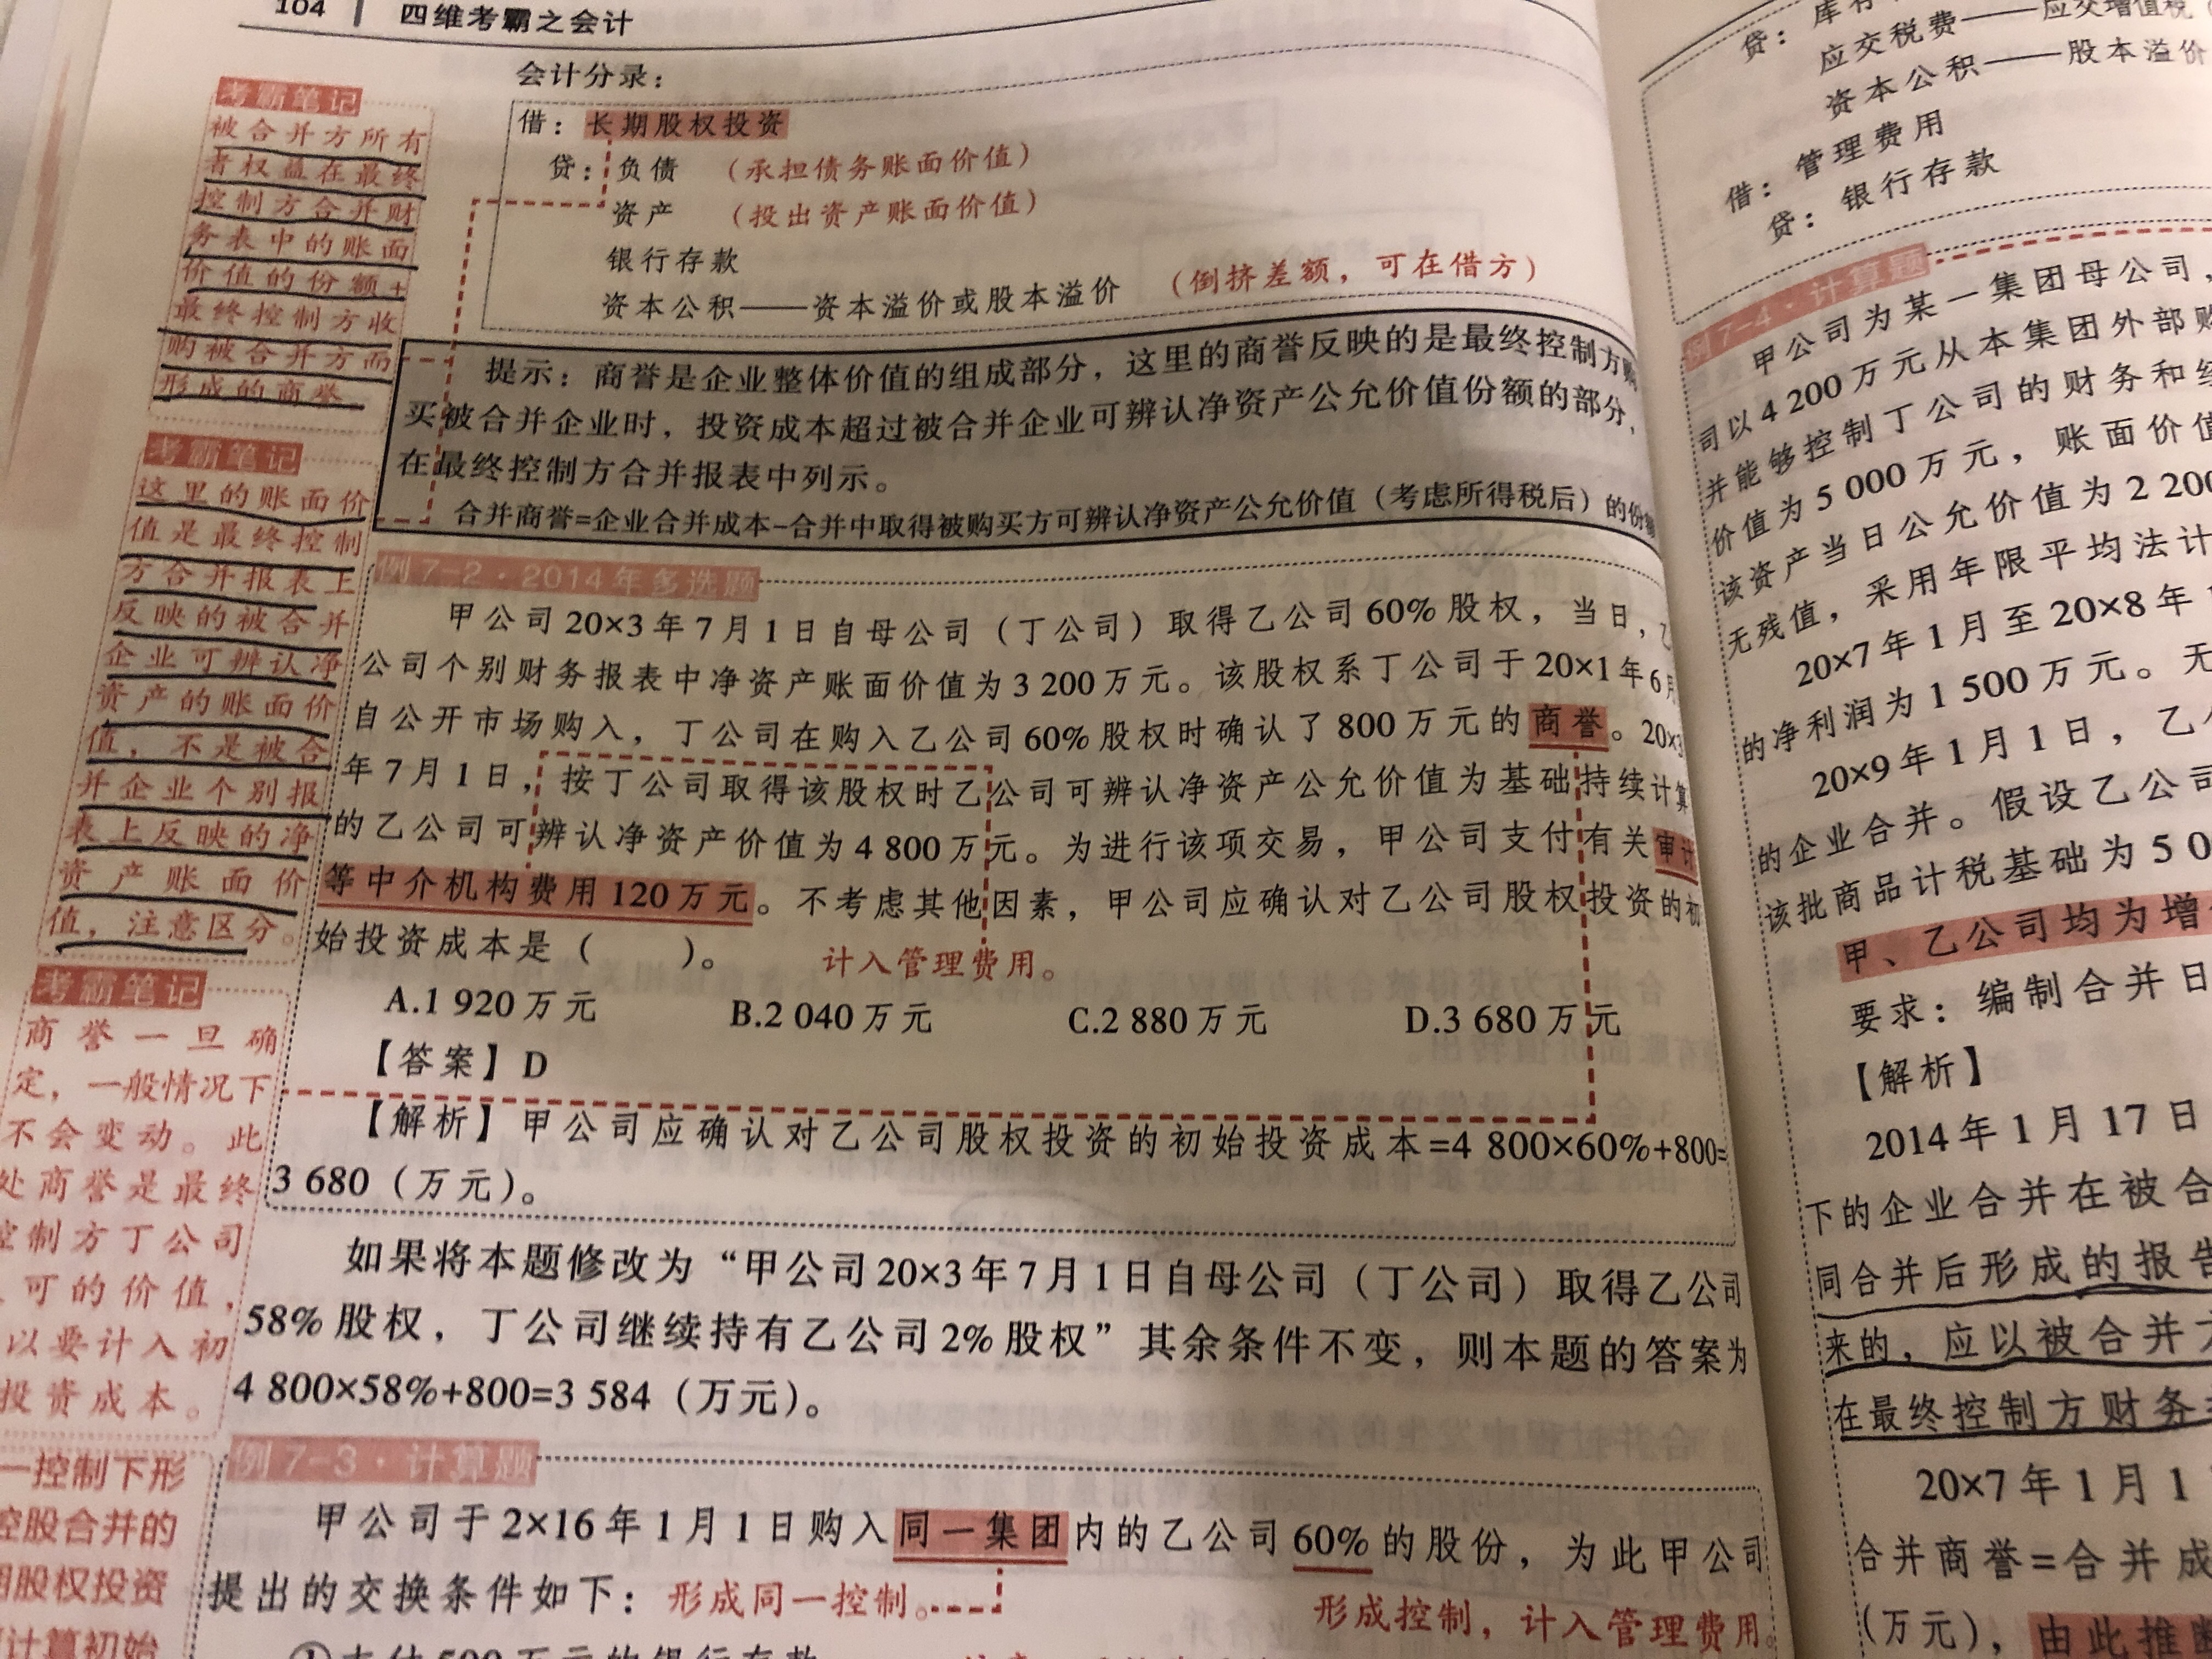 104 四维考霸之会计
会计分录：
借：长期股权投资
贷：负债 （承担债务账面价值）
资产 （投出资产账面价值）
银行存款
资本公积——资本溢价或股本溢价 （倒挤差额，可在借方）
考霸笔记
被合并方所有
者权益在最终
控制方合并财
务表中的账面
价值的份额+
最终控制方收
购被合并方而
形成的商誉
提示：商誉是企业整体价值的组成部分，这里的商誉反映的是最终控制方购
买被合并企业时，投资成本超过被合并企业可辨认净资产公允价值份额的部分，
在最终控制方合并报表中列示。
合并商誉=企业合并成本-合并中取得被购买方可辨认净资产公允价值（考虑所得税后）的份额
考霸笔记
这里的账面价
值是最终控制
方合并报表上
反映的被合并
企业可辨认净
资产的账面价
值，不是被合
并企业个别报
表上反映的净
资产账面价
值，注意区分。
例 7-2·2014年多选题
甲公司20×3年7月1日自母公司（丁公司）取得乙公司60%股权，当日，乙
公司个别财务报表中净资产账面价值为3 200万元。该股权系丁公司于20×1年6月
自公开市场购入，丁公司在购入乙公司60%股权时确认了800万元的商誉。20×3
年7月1日，按丁公司取得该股权时乙公司可辨认净资产公允价值为基础持续计算
的乙公司可辨认净资产价值为4 800万元。为进行该项交易，甲公司支付有关审计
等中介机构费用120万元。不考虑其他因素，甲公司应确认对乙公司股权投资的初
始投资成本是（ ）。 计入管理费用。
A.1 920万元 B.2 040万元 C.2 880万元 D.3 680万元
【答案】D
【解析】甲公司应确认对乙公司股权投资的初始投资成本=4 800×60%+800=
3 680（万元）。
考霸笔记
商誉一旦确
定，一般情况下
不会变动。此
处商誉是最终
控制方丁公司
可的价值，
以要计入初
投资成本。
如果将本题修改为“甲公司20×3年7月1日自母公司（丁公司）取得乙公司
58%股权，丁公司继续持有乙公司2%股权”其余条件不变，则本题的答案为
4 800×58%+800=3 584（万元）。
一控制下形
控股合并的
期股权投资
计算初始
例 7-3·计算题
甲公司于2×16年1月1日购入同一集团内的乙公司60%的股份，为此甲公司
提出的交换条件如下：形成同一控制。 形成控制，计入管理费用。
贷：库存
应交税费——应交增值税（
资本公积——股本溢价
借：管理费用
贷：银行存款
例 7-4·计算题
甲公司为某一集团母公司，
司以4 200万元从本集团外部购
并能够控制丁公司的财务和经
价值为5 000万元，账面价值
该资产当日公允价值为2 200
无残值，采用年限平均法计
20×7年1月至20×8年1
的净利润为1 500万元。无
20×9年1月1日，乙公
的企业合并。假设乙公司
该批商品计税基础为5 0
甲、乙公司均为增值
要求：编制合并日
【解析】
2014年1月17日
下的企业合并在被合
同合并后形成的报告
来的，应以被合并方
在最终控制方财务
20×7年1月1
合并商誉=合并成
（万元），由此推断